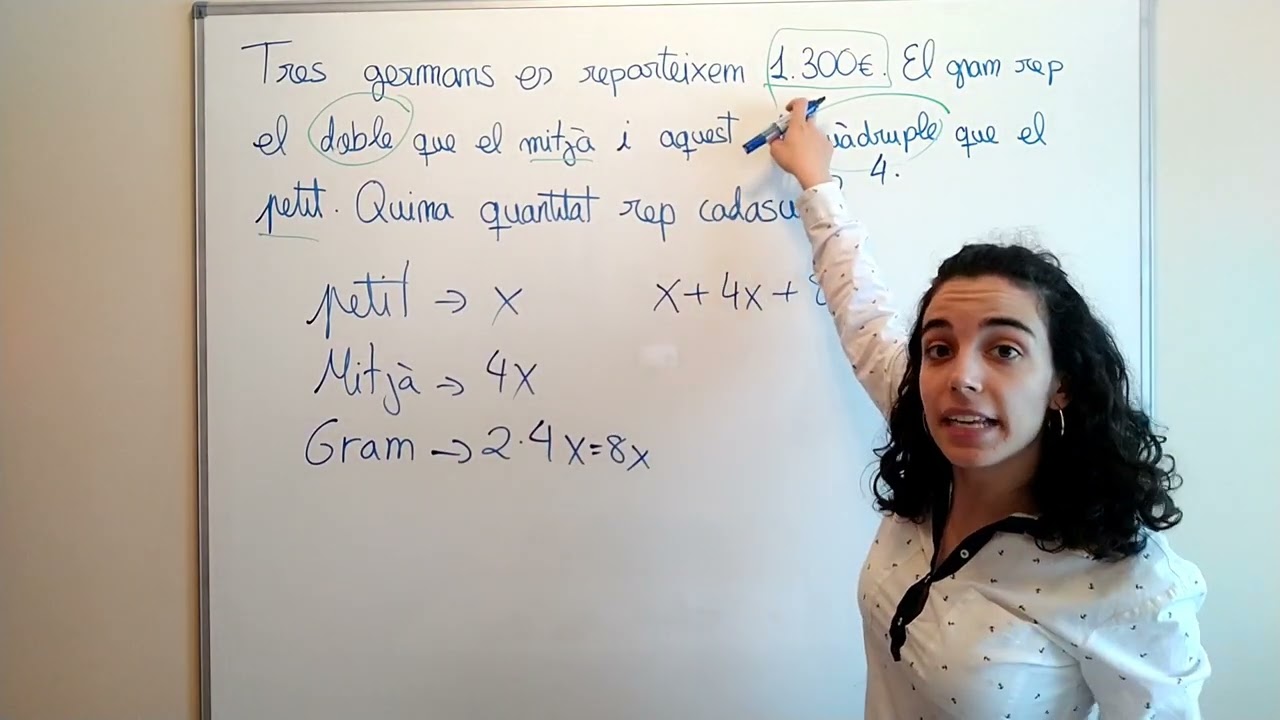 Tres germans es reparteixem 1.300€. El gram rep
el doble que el mitjà i aquest quàdruple que el
4.
petit. Quina quantitat rep cadascu
petit → x
x + 4x + 8
Mitjà → 4x
Gram → 2·4x=8x